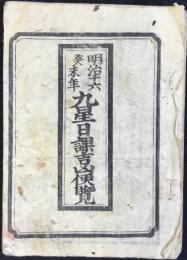 明治十六
癸未年
九星日課吉凶便覧